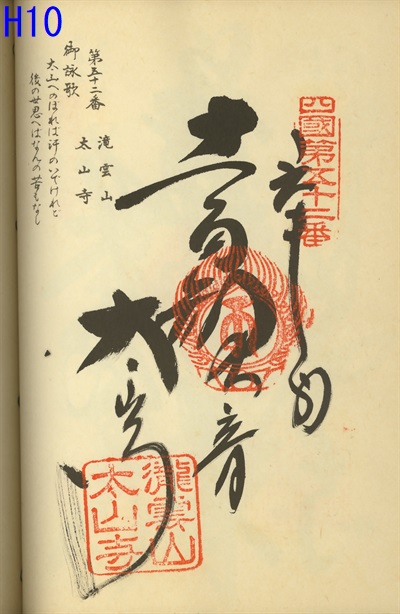 H10
四國第五十二番
奉納
十一面観音
太山寺
瀧雲山
太山寺
滝雲山
第五十二番
太山寺
御詠歌
太山へのぼれば汗のいでけれど
後の世思へばなんの苦もなし